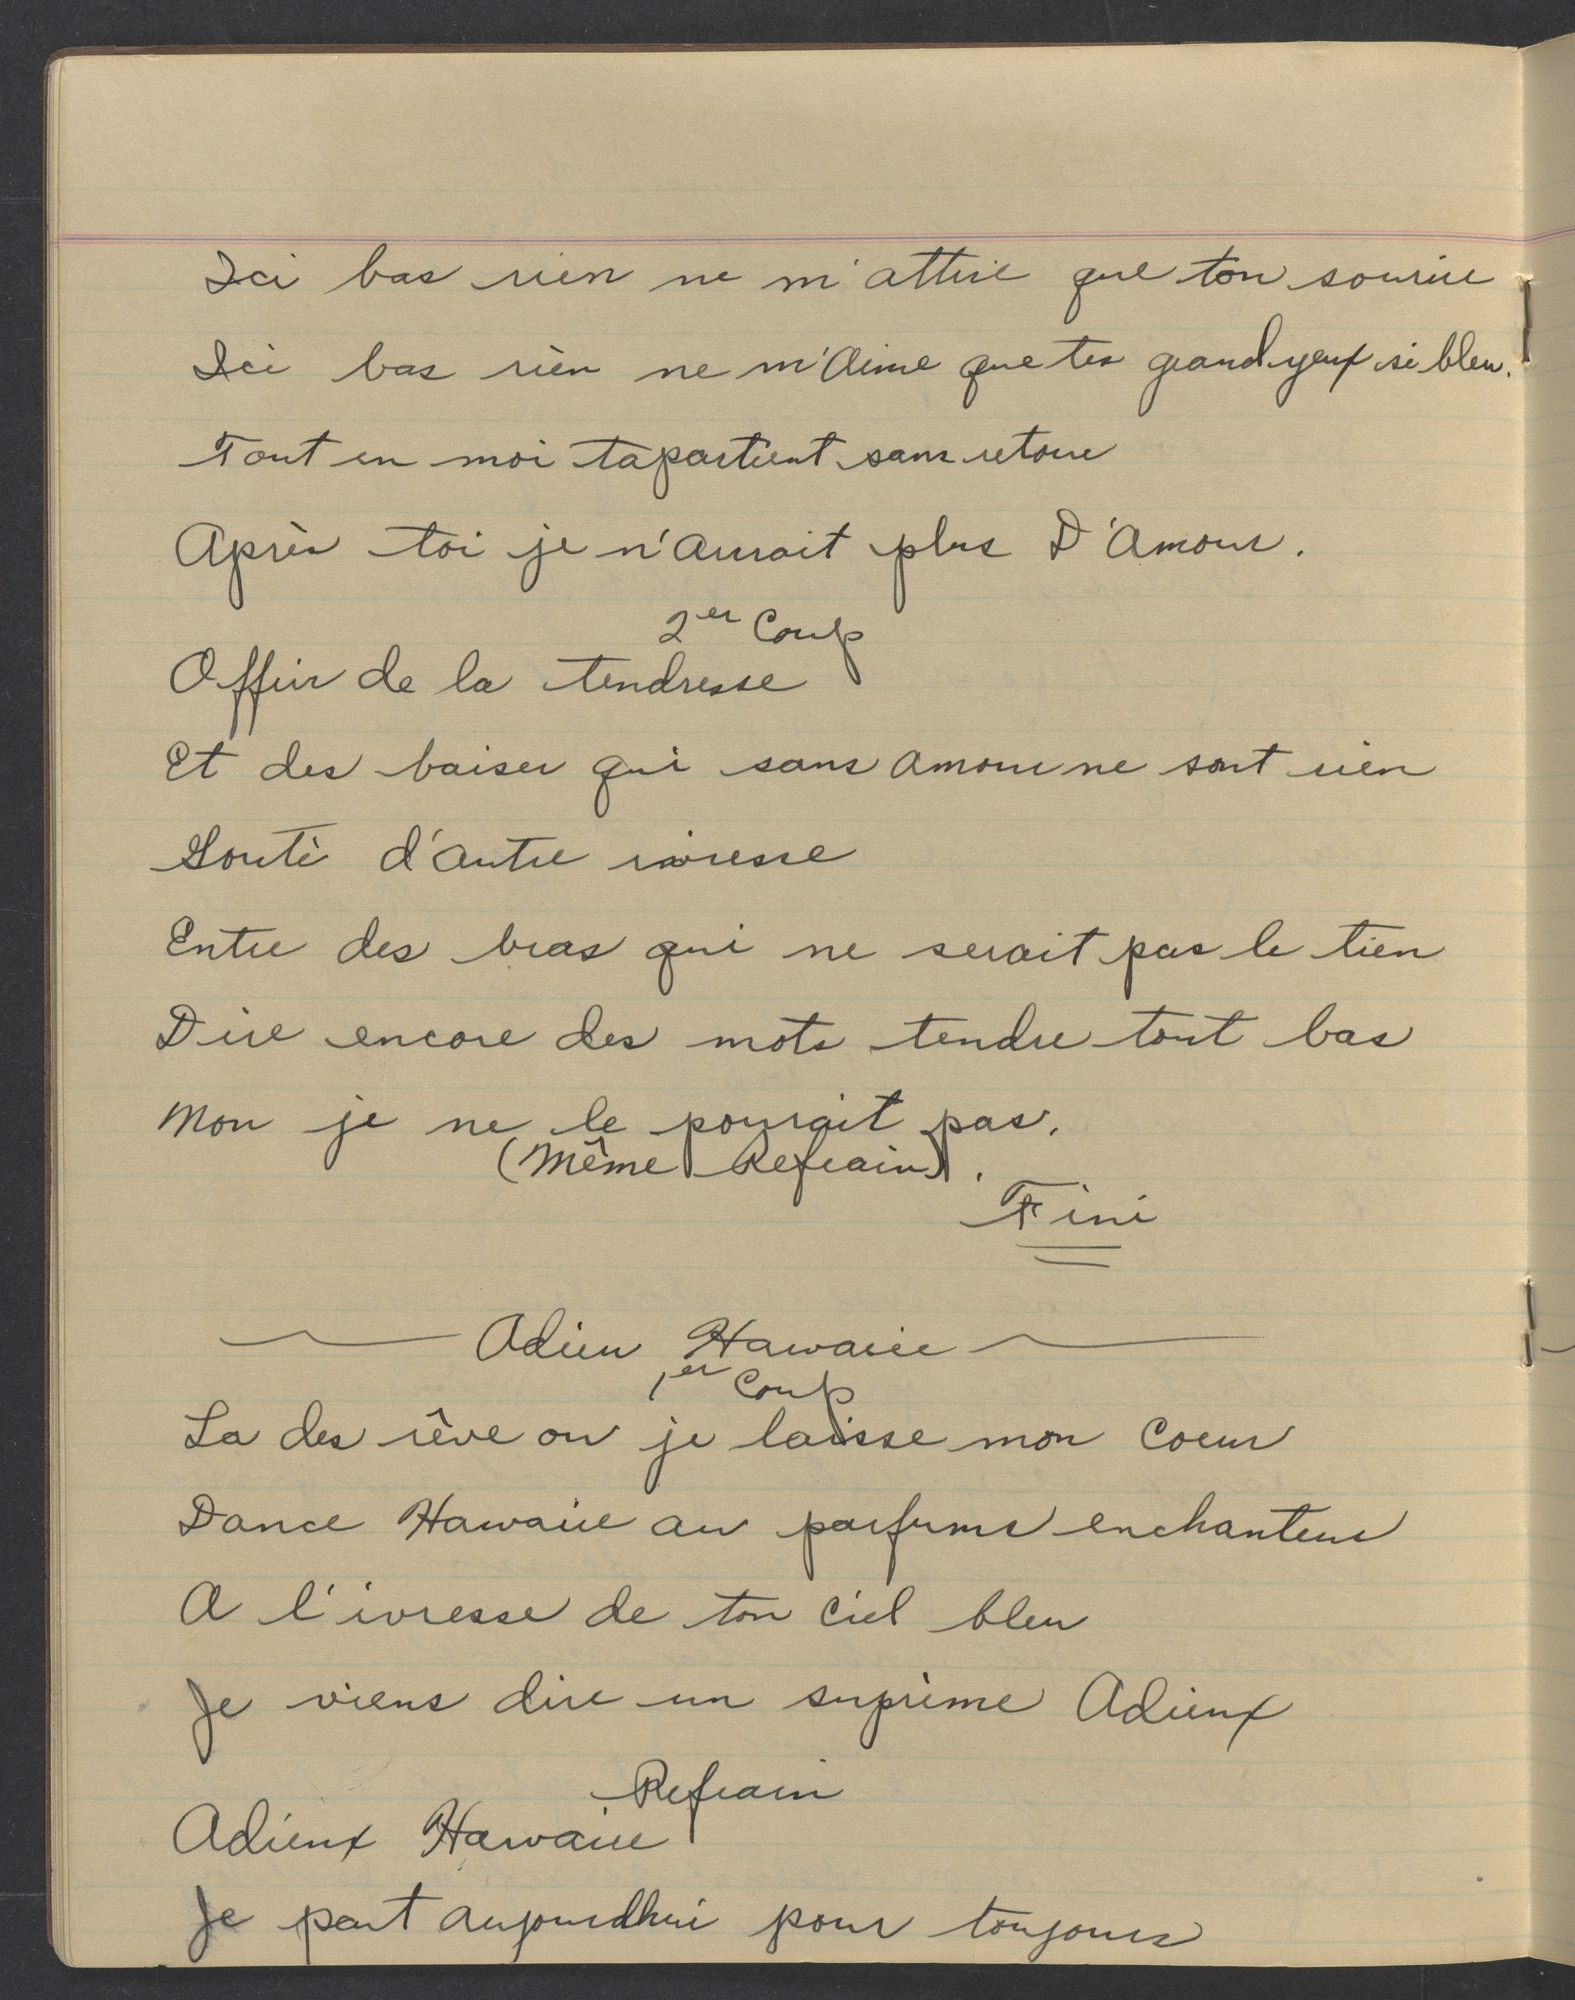 Ici bas rien ne m'attire que ton sourire
Ici bas rièn ne m'Aime que tes grand yeux si bleu.
Tout en moi tapartient sans retour
Après toi je n'Aurait plus D'Amour.
2er Coup
Offrir de la tendresse
Et des baiser qui sans amour ne sont rien
Goutè d'autre ivresse
Entre des bras qui ne serait pas le tien
Dire encore des mots tendre tout bas
Non je ne le pourait pas.
(Même Refrain).
Fini
Adieu Hawaiie
1er Coup
La des rêve ou je laisse mon Coeur
Dance Hawaiie au parfums enchanteur
A l'ivresse de ton Ciel bleu
Je viens dire un suprème Adieux
Refrain
Adieux Hawaiie
Je part aujourdhui pour toujours